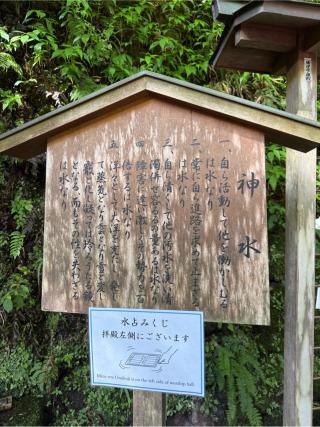 神水
一、自ら活動して他を動かしむる
は水なり
二、常に自ら進路を求めて止まざる
は水なり
三、自ら清くして他の汚水を洗い清
濁併せ容るるの量あるは水なり
四、障害に逢い
は水なり
五、洋々として大洋を充たし、発し
て蒸気となり雲となり雪と変じ
霰と化し凝っては玲瓏たる鏡
となる、而もその性を失わざる
は水なり
水占みくじ
拝殿左側にございます
Mizu-ura Omikuji is on the left side of worship hall.